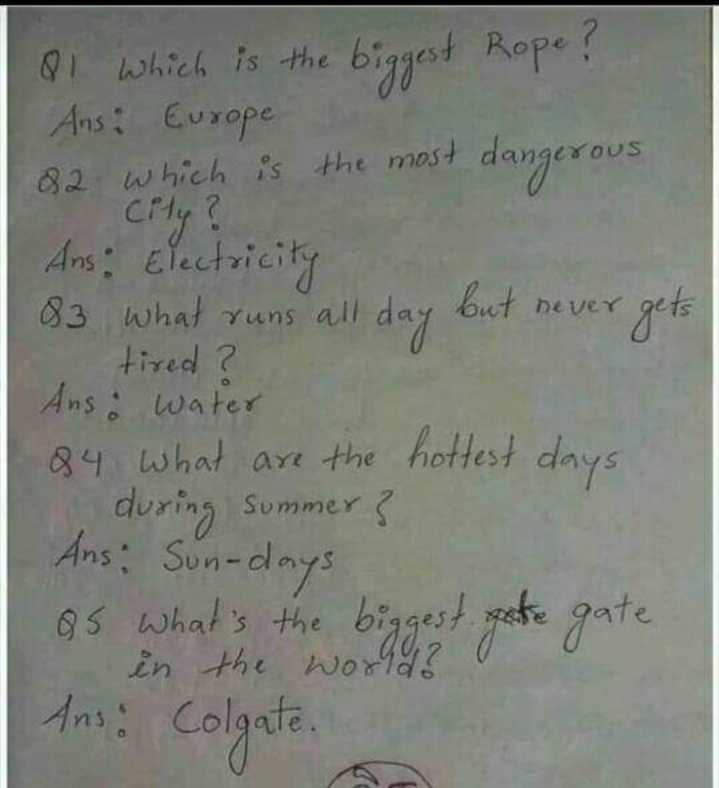 Q1 Which is the biggest Rope?
Ans: Europe
Q2 which is the most dangerous
City?
Ans: Electricity
Q3 What runs all day but never gets
tired?
Ans: Water
Q4 What are the hottest days
during Summer?
Ans: Sun-days
Q5 What's the biggest gate
in the World?
Ans: Colgate.